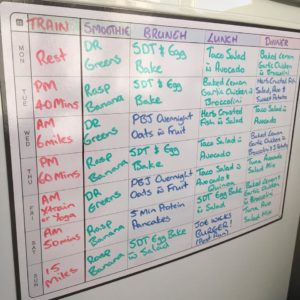 TRAIN SMOOTHIE BRUNCH LUNCH DINNER
MON
Rest
DR Greens
SDT & Egg Bake
Taco Salad
Avocado
Baked Lemon
Garlic Chicken
Broccolini
TUE
PM
40 Mins
Rasp
Banana
SDT & Egg
Bake
Baked Lemon
Garlic Chicken
Broccolini
Herb Crusted Fish
Salad, Avo &
Sweet Potato
WED
AM
6 miles
DR
Greens
PBJ Overnight
Oats Fruit
Herb Crusted
Fish Salad
Taco Salad
Avocado
THU
PM
60 Mins
Rasp
Banana
SDT & Egg
Bake
Taco Salad
Avocado
Baked Lemon
Garlic Chicken
Broccolini
FRI
AM
Xtrain
or Yoga
DR
Greens
PBJ Overnight
Oats Fruit
Taco Salad
Avocado &
Quinoa
Tuna, Avocado
Salad Mix
SAT
AM
50 mins
Rasp
Banana
5 Min Protein
Pancakes
Baked Lemon
Garlic Chicken
SUN
15
Miles
Rasp
Banana
SDT Egg Bake
Salad
JOE WICKS
BURGER!
(Post Run)
Tuna Avo
Salad Mix